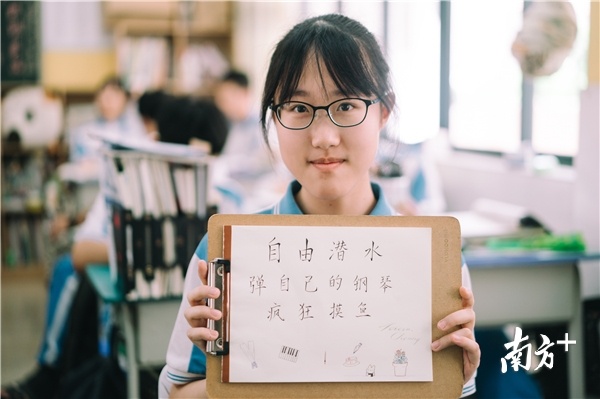 自由潜水
弹自己的钢琴
疯狂摸鱼
南方+